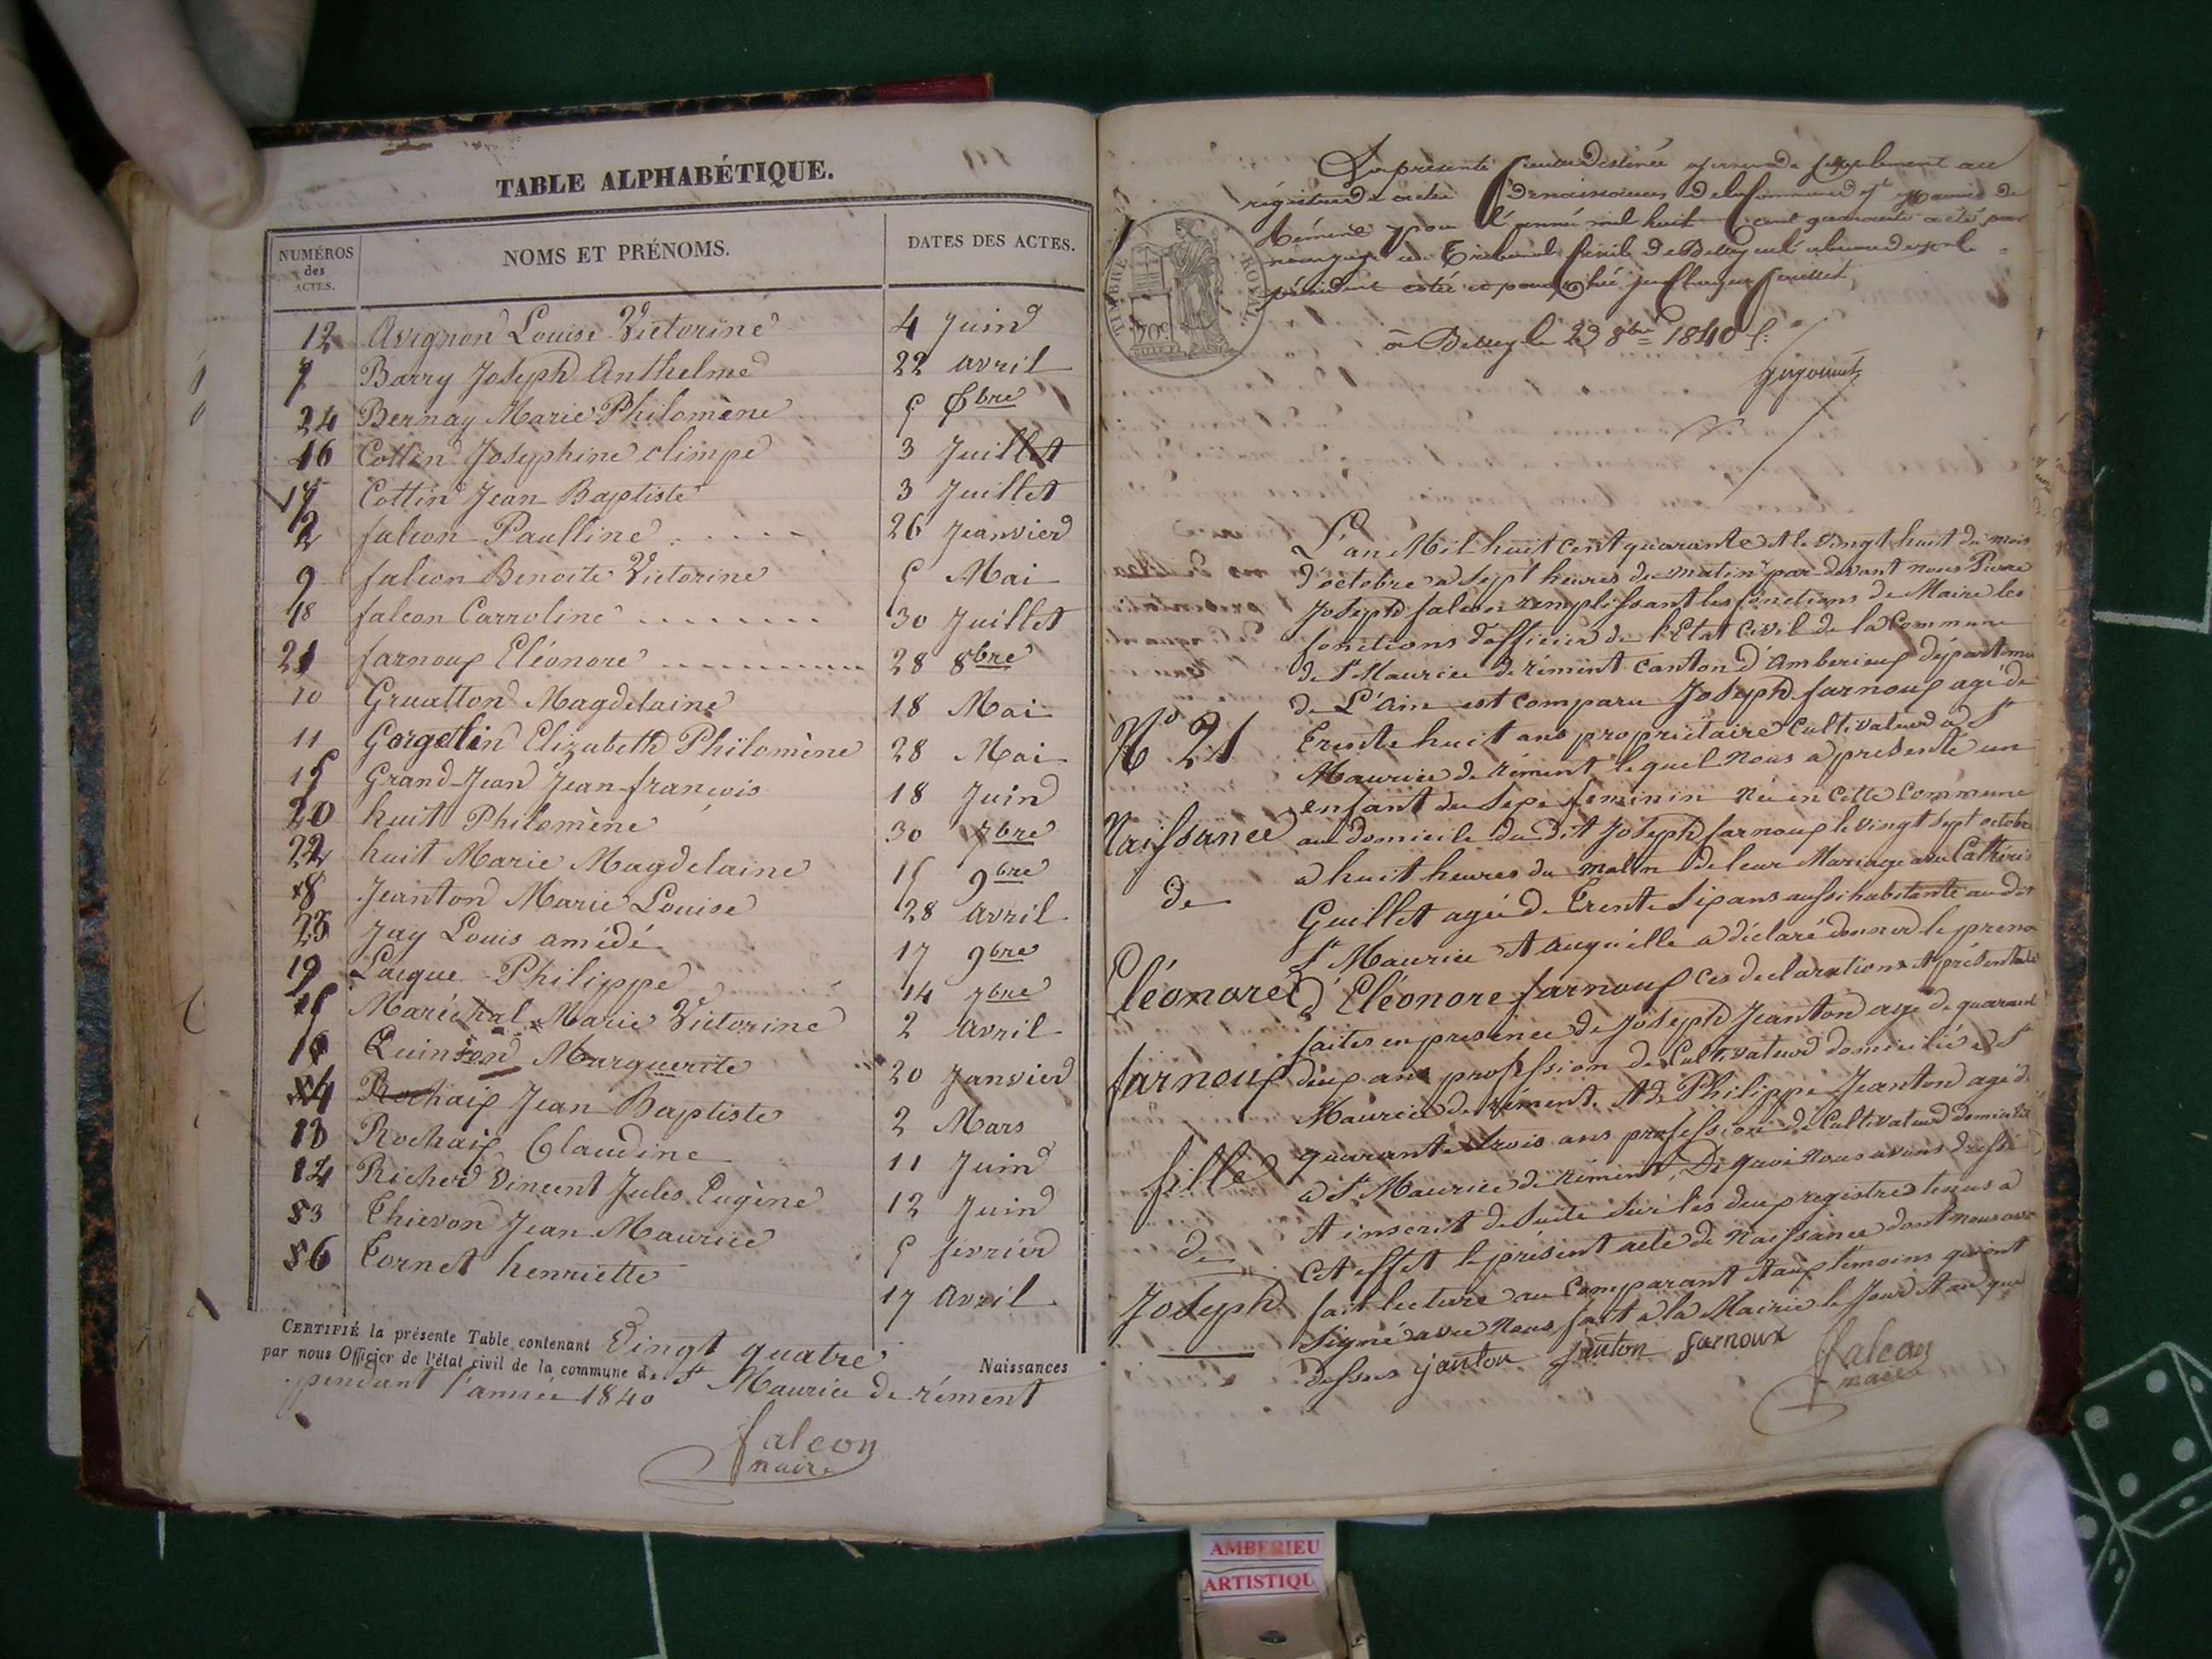 TABLE ALPHABÉTIQUE.
NUMÉROS des ACTES. NOMS ET PRÉNOMS. DATES DES ACTES.
12 Avignon Louise Victorine 4 Juin
7 Barry Joseph Anthelme 22 avril
24 Bernay Marie Philomène
16 Cottin Josephine olimpe 3 Juillet
17 Cottin Jean Baptiste 3 Juillet
2 falcon Paulline 26 Jeanvier
9 falcon Benoite Victorine 5 Mai
18 falcon Carroline 30 Juillet
21 farnoux Eléonore 28 8bre
10 Gruatton Magdelaine 18 Mai
11 Gorgetlin Elizabeth Philomène 28 Mai
15 Grand-Jean Jean-françois 18 Juin
20 huit Philomène 30 7bre
22 huit Marie Magdelaine 15 9bre
8 Jeanton Marie Louise 28 avril
23 Jay Louis amédé 17 9bre
19 Lacque Philippe 14 7bre
5 Maréchal Marie Victorine 2 avril
1 Quinson Marguerite 20 Janvier
4 Rochaix Jean Baptiste 2 Mars
13 Rochaix Claudine 11 Juin
14 Richerd Vincent Jules Eugène 12 Juin
3 Thievon Jean Maurice 5 février
6 Tornet henriette 17 avril
CERTIFIÉ la présente Table contenant Vingt quatre Naissances
par nous Officier de l'état civil de la commune de St Maurice de rément
pendant l'année 1840
falcon
maire
La presente feuille destinée a servir de supplement au
régistre de naissances de la Commune de St Maurice de
Rémens pour l'année mil huit cent quarante a été par
nous juge au Tribunal Civil de Belley
président cotée et paraphée
à Belley le 23 8bre 1840
TIMBRE ROYAL.
70c
L'an Mil huit cent quarante et le Vingt huit du mois
d'octobre a sept heures du matin par devant nous Pierre
Joseph falcon remplissant les fonctions de Maire les
fonctions d'officier de l'Etat Civil de la Commune
de St Maurice de rément canton d'Amberieux départeme
de L'Ain est comparu Joseph farnoux agé de
Trente huit ans propriétaire Cultivateur a St
Maurice de rément lequel nous a presenté un
enfant du Sexe feminin née en cette Commune
au domicile du dit Joseph farnoux le vingt sept octobre
a huit heures du matin de leur Mariage avec Catheri
Guillet agée de Trente Six ans aussi habitante au dit
St Maurice et auquelle a déclaré donner le preno
d'Eléonore farnoux ces declarations et présentatio
faites en presence de Joseph Jeanton agé de quarant
deux ans profession de Cultivateur domicilié a St
Maurice de rément et de Philippe Jeanton agé d
quarante trois ans profession de Cultivateur domicilié
a St Maurice de rément, De quoi nous avons dressé
et inscrit de suite sur les deux registres tenus a
cet effet le présent acte de Naissance dont nous avo
fait lecture au Comparant et aux témoins qui ont
Signé avec nous fait a la Mairie le Jour et an que
dessus janton janton farnoux falcon
maire
No 21
Naissance
de
Eléonore
farnoux
fille
de
Joseph
AMBERIEU
ARTISTIQU